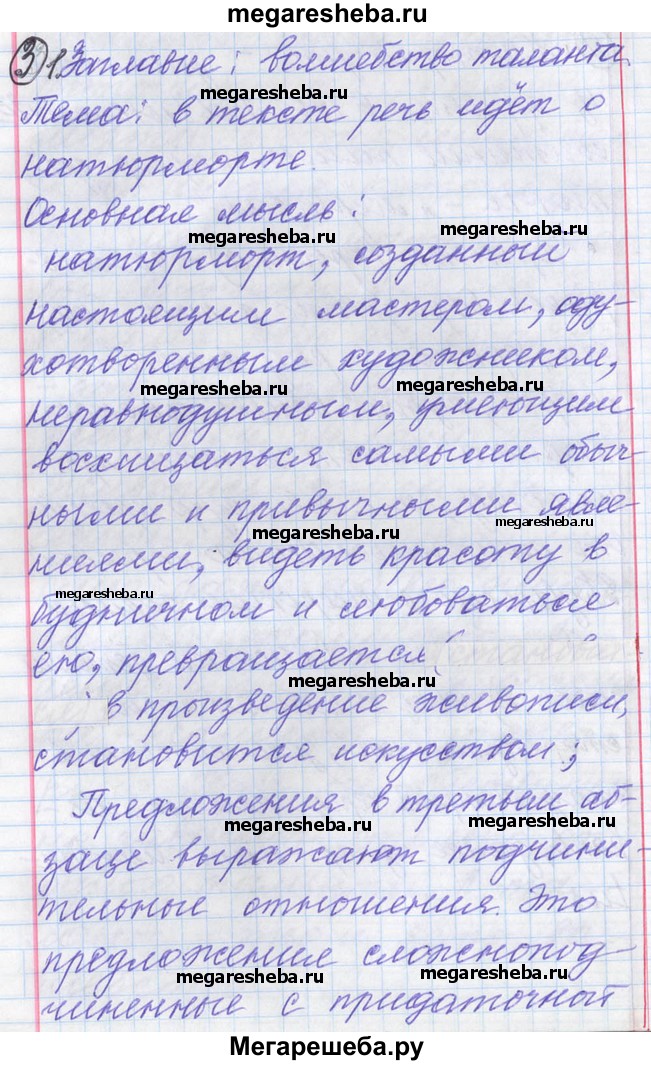 megaresheba.ru
③ 1. Заглавие: волшебство таланта.
megaresheba.ru
Тема: в тексте речь идёт о
megaresheba.ru
натюрморте.
Основная мысль:
megaresheba.ru megaresheba.ru
натюрморт, созданный
настоящим мастером, оду-
хотворенным художником,
megaresheba.ru megaresheba.ru
неравнодушным, умеющим
восхищаться самыми обыч-
ными и привычными явле-
megaresheba.ru megaresheba.ru
ниями, видеть красоту в
megaresheba.ru
будничном и любоваться
ею, превращается
megaresheba.ru
в произведение живописи,
становится искусством;
Предложения в третьем аб-
megaresheba.ru megaresheba.ru
заце выражают подчини-
тельные отношения. Это
предложения сложнопод-
megaresheba.ru megaresheba.ru
чиненные с придаточной
Мегарешеба.ру